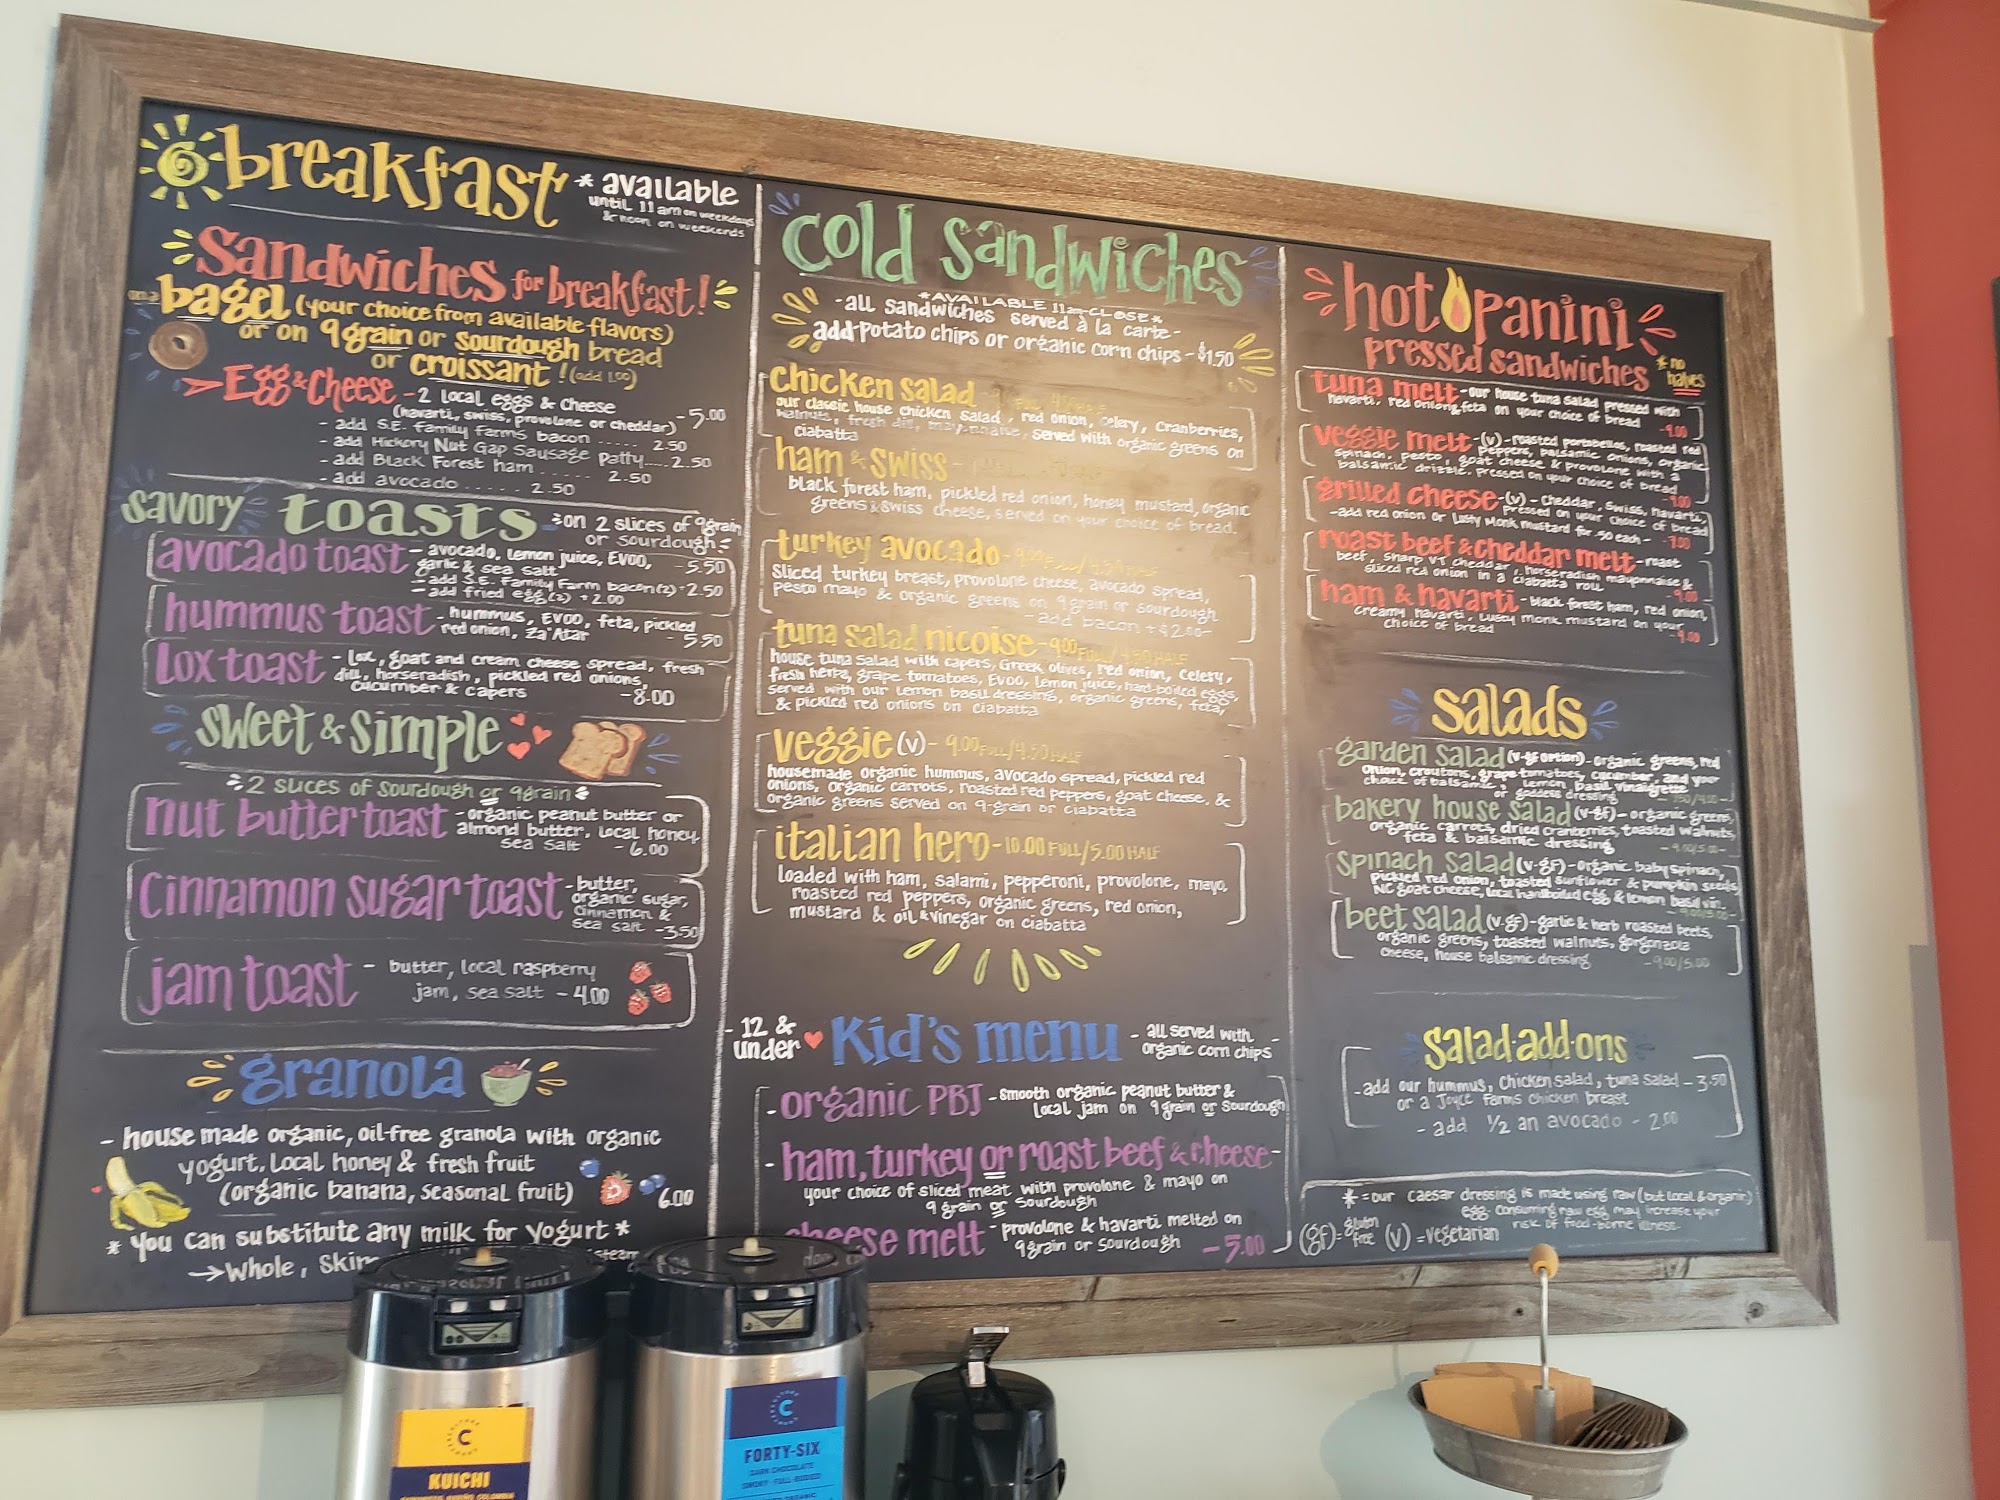 breakfast
* available
until 11am on weekdays
& noon on weekends
Sandwiches for breakfast!
on a bagel (your choice from available flavors)
or on 9 grain or sourdough bread
or croissant! (add 1.00)
Egg & Cheese - 2 local eggs & cheese
(havarti, swiss, provolone or cheddar) - 5.00
- add S.E. family farms bacon ..... 2.50
- add Hickory Nut Gap Sausage Patty.....2.50
- add Black Forest ham .... 2.50
- add avocado ...... 2.50
savory toasts on 2 slices of 9 grain
or sourdough
avocado toast - avocado, lemon juice, EVOO,
garlic & sea salt - 5.50
- add S.E. Family Farm bacon(2) + 2.50
- add fried egg(2) + 2.00
hummus toast - hummus, EVOO, feta, pickled
red onion, Za'Atar - 5.50
lox toast - lox, goat and cream cheese spread, fresh
dill, horseradish, pickled red onions,
cucumber & capers - 8.00
sweet & simple
2 slices of sourdough or 9 grain
nut butter toast - organic peanut butter or
almond butter, local honey,
sea salt - 6.00
cinnamon sugar toast - butter,
organic sugar,
cinnamon &
sea salt - 3.50
jam toast - butter, local raspberry
jam, sea salt - 4.00
granola
- house made organic, oil-free granola with organic
yogurt, local honey & fresh fruit
(organic banana, seasonal fruit) 6.00
* You can substitute any milk for yogurt *
→ Whole, Skim
cold sandwiches
*AVAILABLE 11am-CLOSE*
- all sandwiches served à la carte -
add potato chips or organic corn chips - $1.50
chicken salad
our classic house chicken salad, red onion, celery, cranberries,
walnuts, fresh dill, mayonnaise, served with organic greens on
ciabatta
ham & swiss -
black forest ham, pickled red onion, honey mustard, organic
greens & swiss cheese, served on your choice of bread.
turkey avocado - 9.00 FULL/4.50 HALF
sliced turkey breast, provolone cheese, avocado spread,
pesto mayo & organic greens on 9 grain or sourdough
- add bacon + $2.00 -
tuna salad nicoise - 9.00 FULL/4.50 HALF
house tuna salad with capers, Greek olives, red onion, celery,
fresh herbs, grape tomatoes, EVOO, lemon juice, hard-boiled eggs,
served with our lemon basil dressing, organic greens, feta,
& pickled red onions on ciabatta
veggie (v) - 9.00 FULL/4.50 HALF
housemade organic hummus, avocado spread, pickled red
onions, organic carrots, roasted red peppers, goat cheese, &
organic greens served on 9-grain or ciabatta
italian hero - 10.00 FULL/5.00 HALF
loaded with ham, salami, pepperoni, provolone, mayo,
roasted red peppers, organic greens, red onion,
mustard & oil & vinegar on ciabatta
- 12 &
under
Kid's menu
- all served with -
organic corn chips
- organic PBJ - smooth organic peanut butter &
local jam on 9 grain or sourdough
- ham, turkey or roast beef & cheese -
your choice of sliced meat with provolone & mayo on
9 grain or sourdough
cheese melt - provolone & havarti melted on
9 grain or sourdough - 5.00
hot panini
pressed sandwiches
* no
halves
tuna melt - our house tuna salad pressed with
havarti, red onion, & feta on your choice of bread - 9.00
veggie melt - (v) - roasted portabellos, roasted red
peppers, balsamic onions, organic
spinach, pesto, goat cheese & provolone with a
balsamic drizzle. pressed on your choice of bread
- 9.00
grilled cheese - (v) - cheddar, swiss, havarti,
pressed on your choice of bread
- add red onion or Lusty Monk mustard for .50 each - - 7.00
roast beef & cheddar melt - roast
beef, sharp VT cheddar, horseradish mayonnaise &
sliced red onion in a ciabatta roll
- 9.00
ham & havarti - black forest ham, red onion,
creamy havarti, Lusty Monk mustard on your
choice of bread - 9.00
salads
garden salad (v-gf option) - organic greens, red
onion, croutons, grape tomatoes, cucumber, and your
choice of balsamic, lemon basil vinaigrette
or goddess dressing
bakery house salad (v-gf) - organic greens,
organic carrots, dried cranberries, toasted walnuts,
feta & balsamic dressing - 9.00/5.00 -
spinach salad (v-gf) - organic baby spinach,
pickled red onion, toasted sunflower & pumpkin seeds,
NC goat cheese, local hardboiled egg & lemon basil vin.
- 9.00/5.00 -
beet salad (v-gf) - garlic & herb roasted beets,
organic greens, toasted walnuts, gorgonzola
cheese, house balsamic dressing - 9.00/5.00
salad·add·ons
- add our hummus, chicken salad, tuna salad - 3.50
or a Joyce Farms chicken breast
- add 1/2 an avocado - 2.00
* = our caesar dressing is made using raw (but local & organic)
egg. Consuming raw egg may increase your
risk of food-borne illness.
(gf) = gluten free (v) = vegetarian
C
KUICHI
C
FORTY-SIX
DARK CHOCOLATE
SMOKY · FULL-BODIED